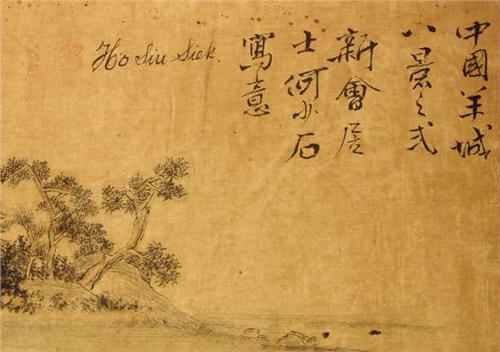 中國羊城
八景之弍
新會居
士何小石
寫意
Ho Siu Siek.